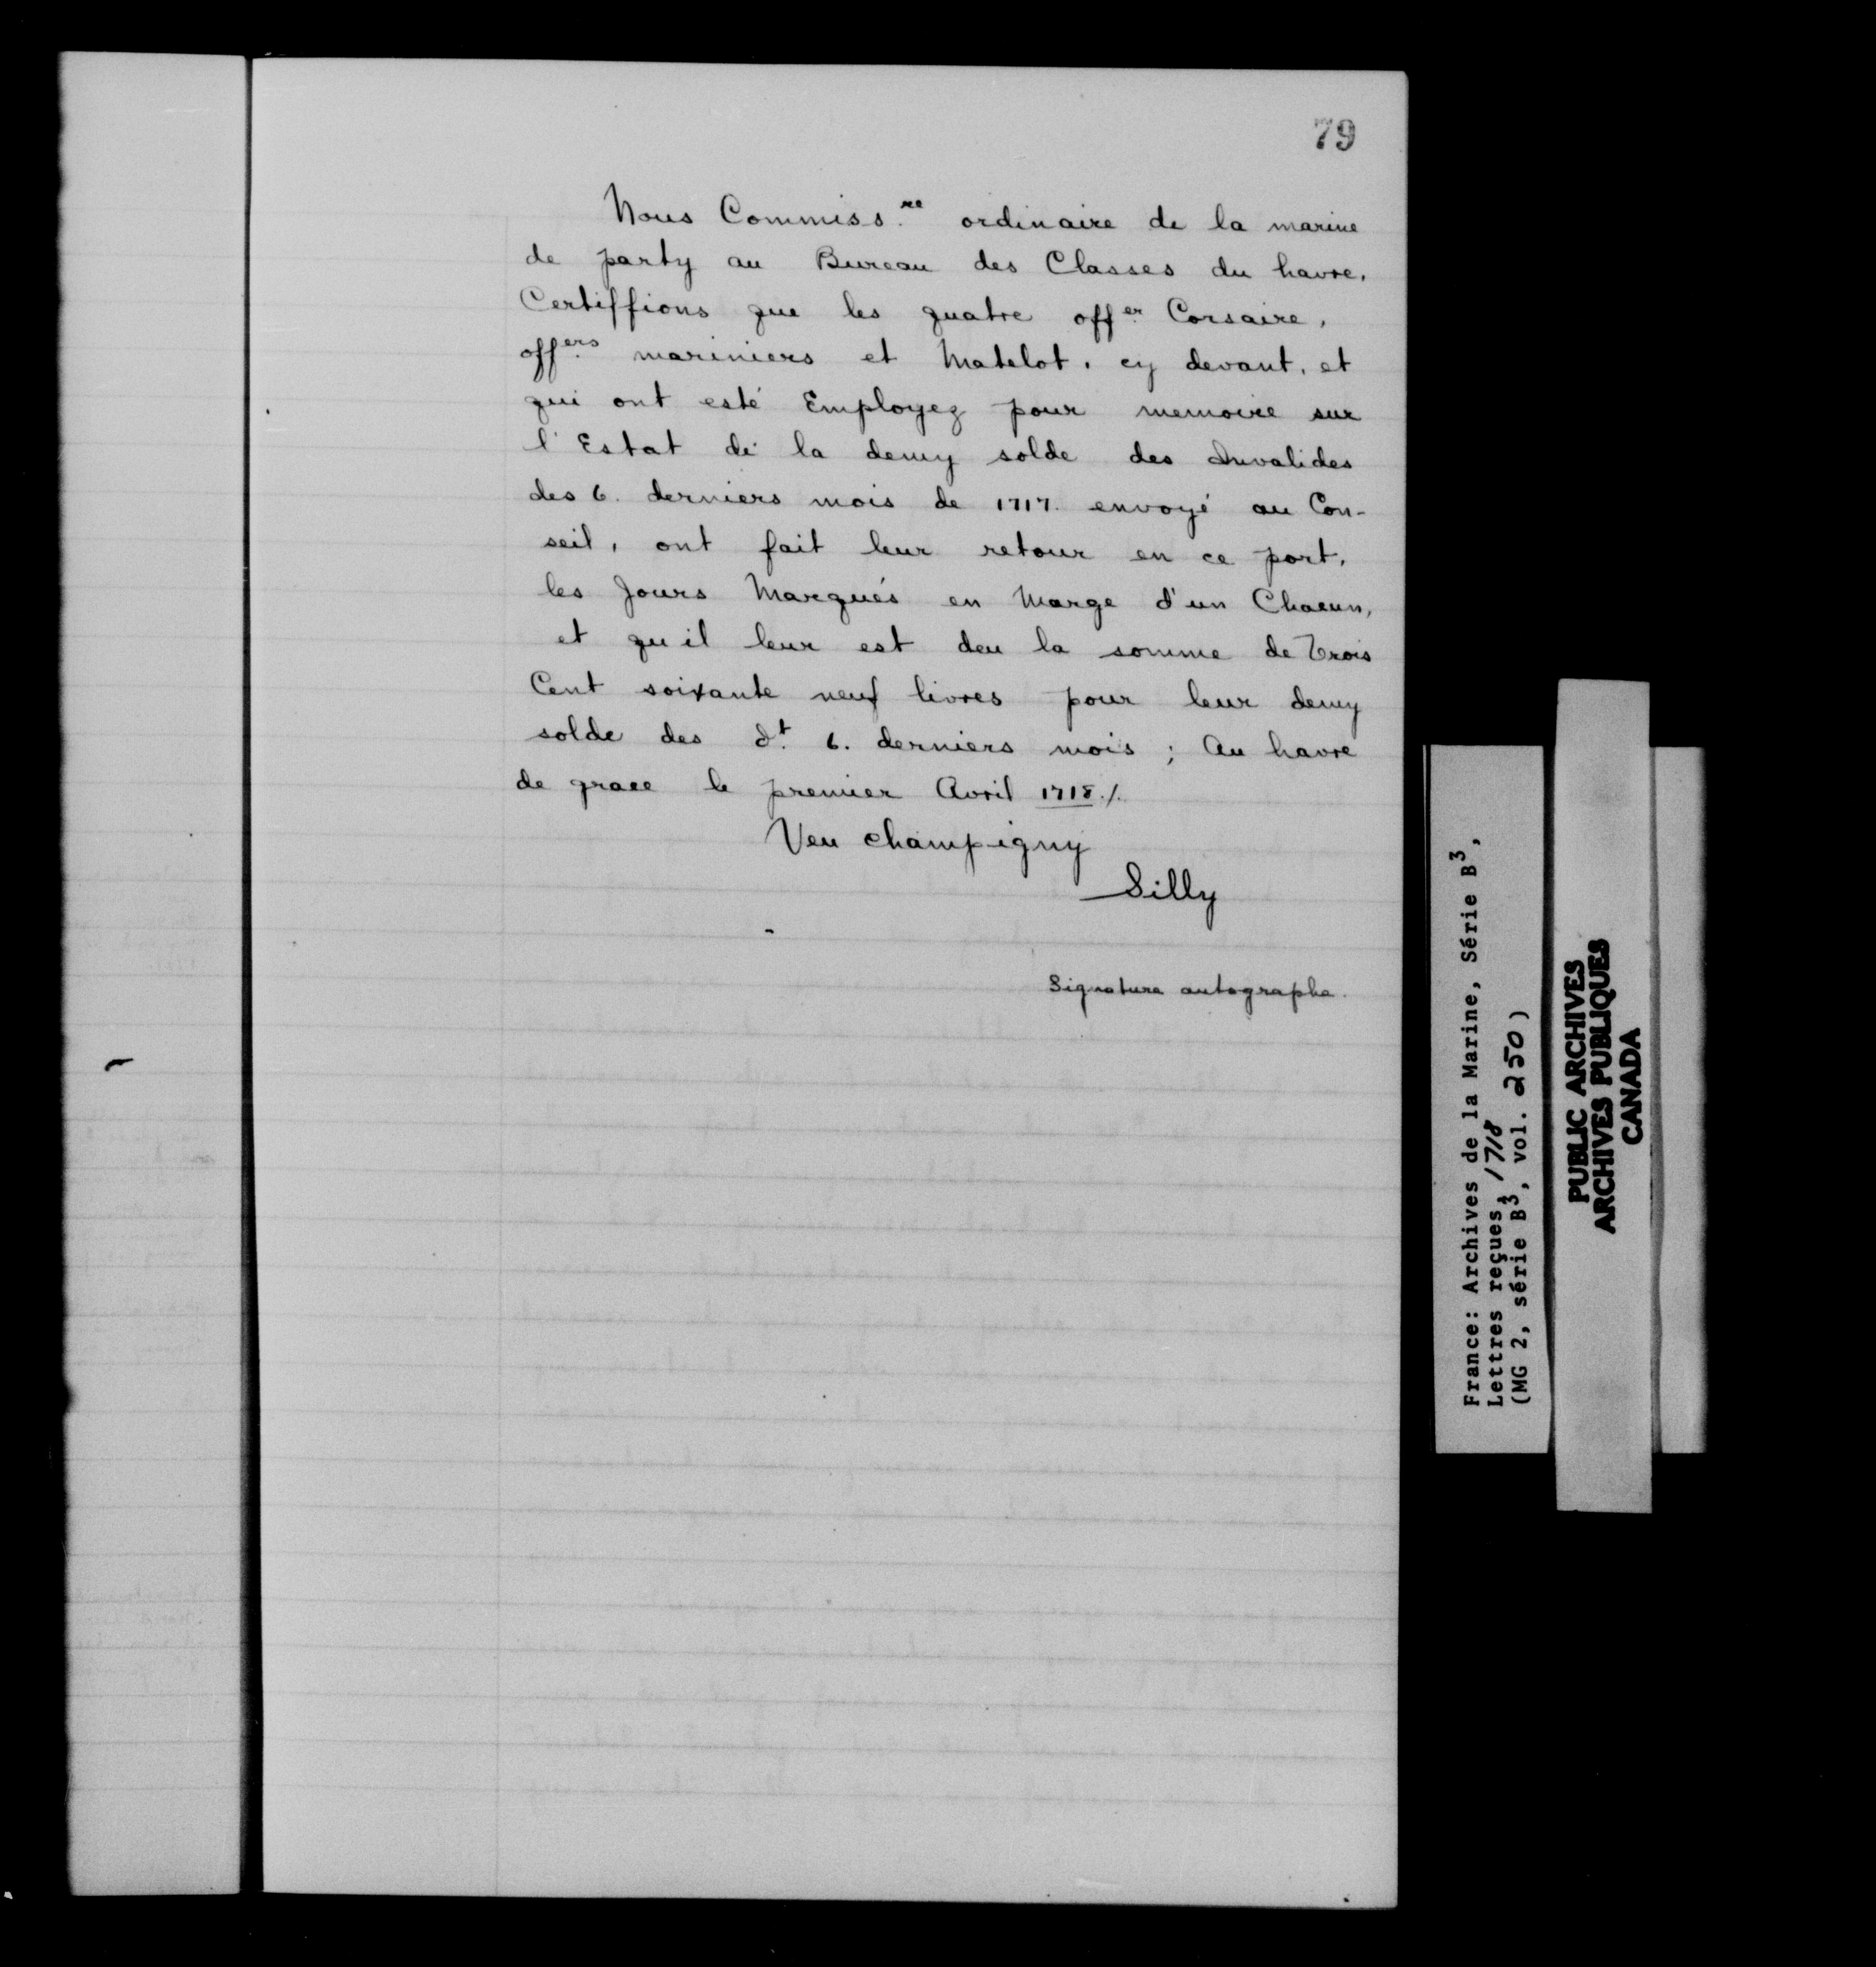 79
Nous Commiss.re ordinaire de la marine
de party au Bureau des Classes du havre.
Certiffions que les quatre off.er Corsaire,
off.ers mariniers et Matelot. cy devant, et
qui ont esté Employez pour memoire sur
l'Estat de la demy solde des Invalides
des 6. derniers mois de 1717. envoyé au Con-
seil, ont fait leur retour en ce port,
les Jours Marqués en Marge d'un Chacun,
et qu'il leur est deu la somme de Trois
Cent soixante neuf livres pour leur demy
solde des d.t 6. derniers mois ; Au havre
de grace le premier Avril 1718./.
Veu champigny
Silly
Signature autographe.
France: Archives de la Marine, Série B3,
Lettres reçues, 1718
(MG 2, série B3, vol. 250)
PUBLIC ARCHIVES
ARCHIVES PUBLIQUES
CANADA